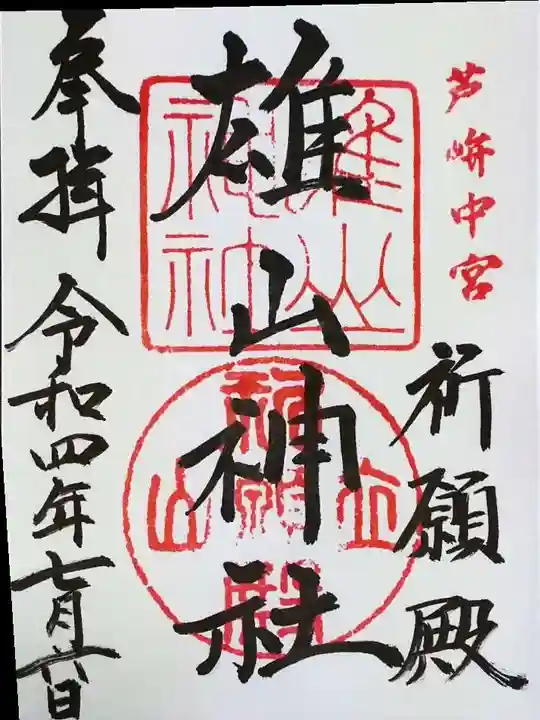 芦峅中宮
祈願殿
雄山神社
雄山神社
立山
祈願殿
奉拝 令和四年七月六日